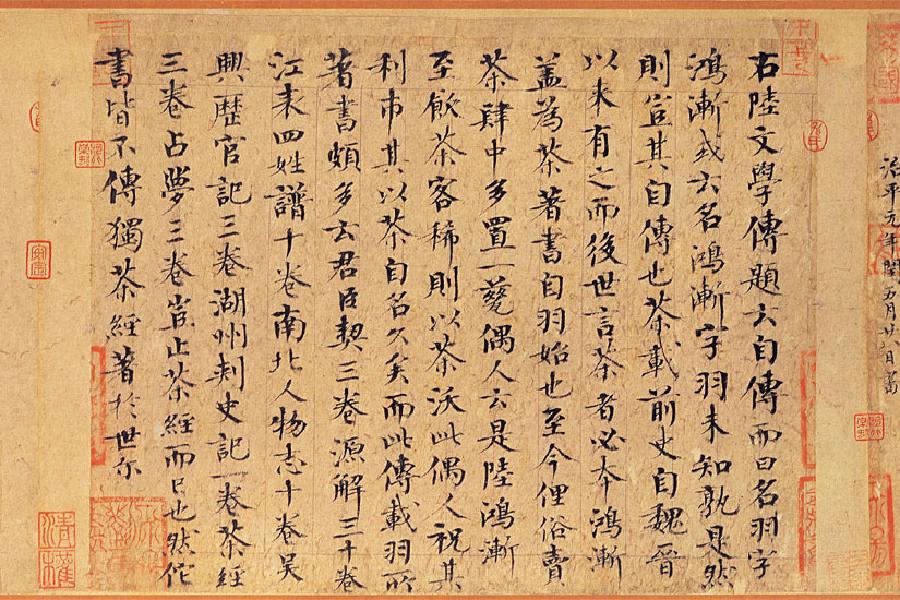 治平元年閏五月廿八日書
右陸文學傳題云自傳而曰名羽字
鴻漸或云名鴻漸字羽未知孰是然
則豈其自傳也茶載前史自魏晉
以來有之而後世言茶者必本鴻漸
蓋為茶著書自羽始也至今俚俗賣
茶肆中多置一甆偶人云是陸鴻漸
至飲茶客稀則以茶沃此偶人祝其
利市其以茶自名久矣而此傳載羽所
著書頗多云君臣契三卷源解三十卷
江表四姓譜十卷南北人物志十卷吳
興歷官記三卷湖州刺史記一卷茶經
三卷占夢三卷豈止茶經而已也然佗
書皆不傳獨茶經著於世尔